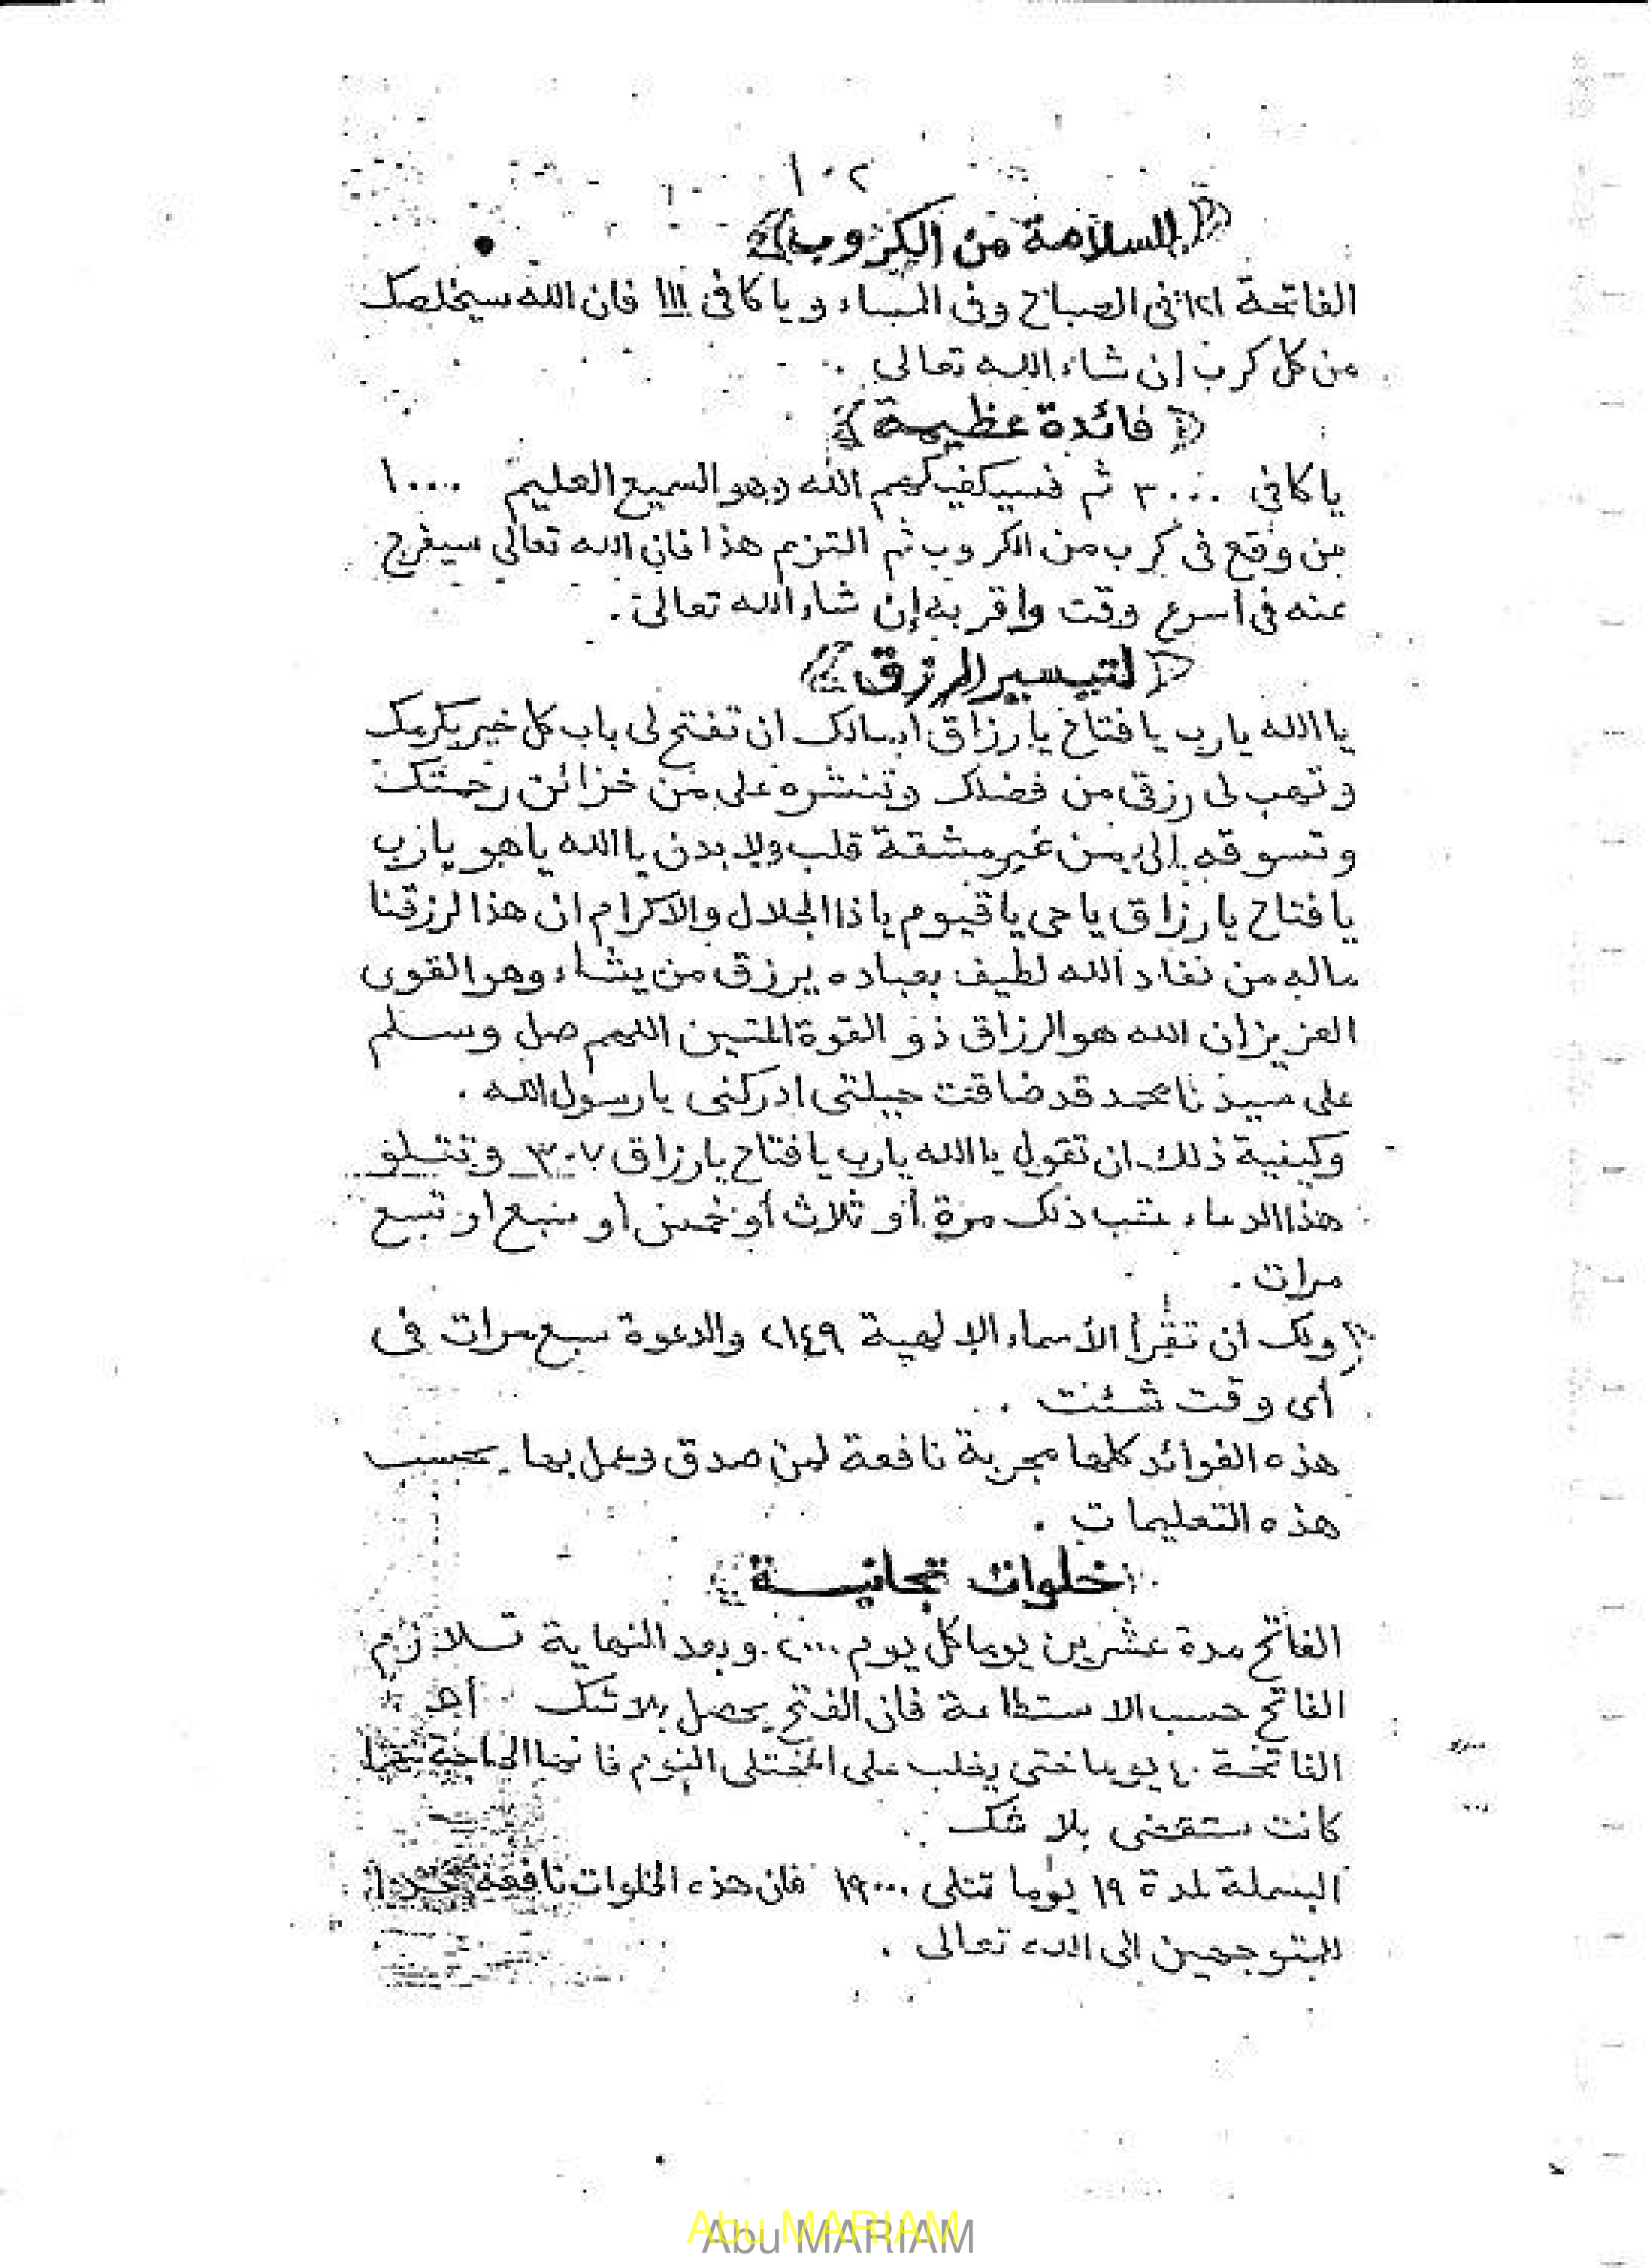 ١٠٢
﴿ للسلامة من الكروب ﴾
الفاتحة ١٢١ فى الصباح وفى المساء و يا كافى ١١١ فان الله سيخلصك
من كل كرب إن شاء الله تعالى .
﴿ فائدة عظيمة ﴾
يا كافى ٣٠٠٠ ثم فسيكفيكهم الله وهو السميع العليم ١٠٠٠
من وقع فى كرب من الكروب ثم التزم هذا فان الله تعالى سيفرج
عنه فى أسرع وقت واقربه إن شاء الله تعالى .
﴿ لتيسير الرزق ﴾
يا الله يارب يا فتاح يا رزاق اسالك ان تفتح لى باب كل خير بكرمك
وتهب لى رزقى من فضلك وتنشره على من خزائن رحمتك
وتسوقه إلى من غير مشقة قلب ولا بدن يا الله ياهو يارب
يا فتاح يا رزاق يا حى يا قيوم يا ذا الجلال والاكرام ان هذا لرزقنا
ماله من نفاد الله لطيف بعباده يرزق من يشاء وهو القوى
العزيز ان الله هو الرزاق ذو القوة المتين اللهم صل وسلم
على سيدنا محمد قد ضاقت حيلتى ادركنى يا رسول الله .
وكيفية ذلك ان تقول يا الله يارب يا فتاح يا رزاق ٣٠٧ وتتلو
هذا الدعاء عقب ذلك مرة أو ثلاث أو خمس أو سبع او تسع
مرات .
ولك ان تقرأ الأسماء الإلهية ٢١٤٩ والدعوة سبع مرات فى
أى وقت شئت .
هذه الفوائد كلها مجربة نافعة لمن صدق وعمل بها بحسب
هذه التعليمات .
﴿ خلوات تجانية ﴾
الفاتح مدة عشرين يوما كل يوم ٢٠٠٠ وبعد النهاية تلازم
الفاتح حسب الاستطاعة فان الفتح يحصل بلا شك
الفاتحة ٤٠ يوما حتى يغلب على المختلى النوم فانها الى
كانت ستقضى بلا شك .
البسملة لمدة ١٩ يوما تتلى ١٩٠٠٠ فان هذه الخلوات نافعة
للمتوجهين الى الله تعالى .
Abu MARIAM